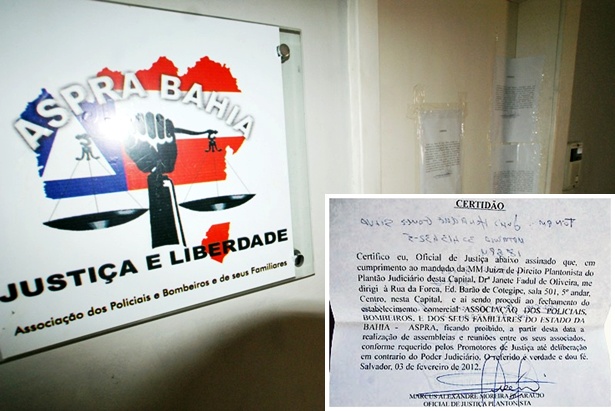 ASPRA BAHIA
JUSTIÇA E LIBERDADE
Associação dos Policiais e Bombeiros e de seus Familiares
CERTIDÃO
Certifico eu, Oficial de Justiça abaixo assinado que, em
cumprimento ao mandado da MM Juíza de Direito Plantonista do
Plantão Judiciário desta Capital, Drª Janete Fadul de Oliveira, me
dirigi à Rua da Forca, Ed. Barão de Cotegipe, sala 501, 5º andar,
Centro, nesta Capital, e aí sendo procedi ao fechamento do
estabelecimento comercial ASSOCIAÇÃO DOS POLICIAIS,
BOMBEIROS, E DOS SEUS FAMILIARES DO ESTADO DA
BAHIA - ASPRA, ficando proibido, a partir desta data a
realização de assembleias e reuniões entre os seus associados,
conforme requerido pelos Promotores de Justiça até deliberação
em contrario do Poder Judiciário. O referido é verdade e dou fé.
Salvador, 03 de fevereiro de 2012.
MARCUS ALEXANDRE MOREIRA
OFICIAL DE JUSTIÇA PLANTONISTA